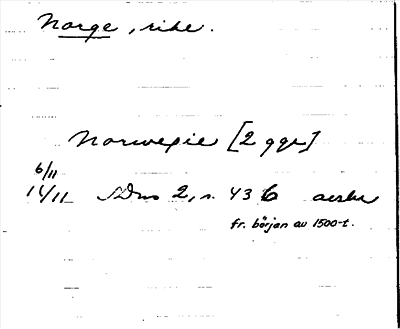 Norge, rike.
Norwegie [2 ggr]
6/11
1411 SDns 2, s. 436 avskr
fr. början av 1500-t.